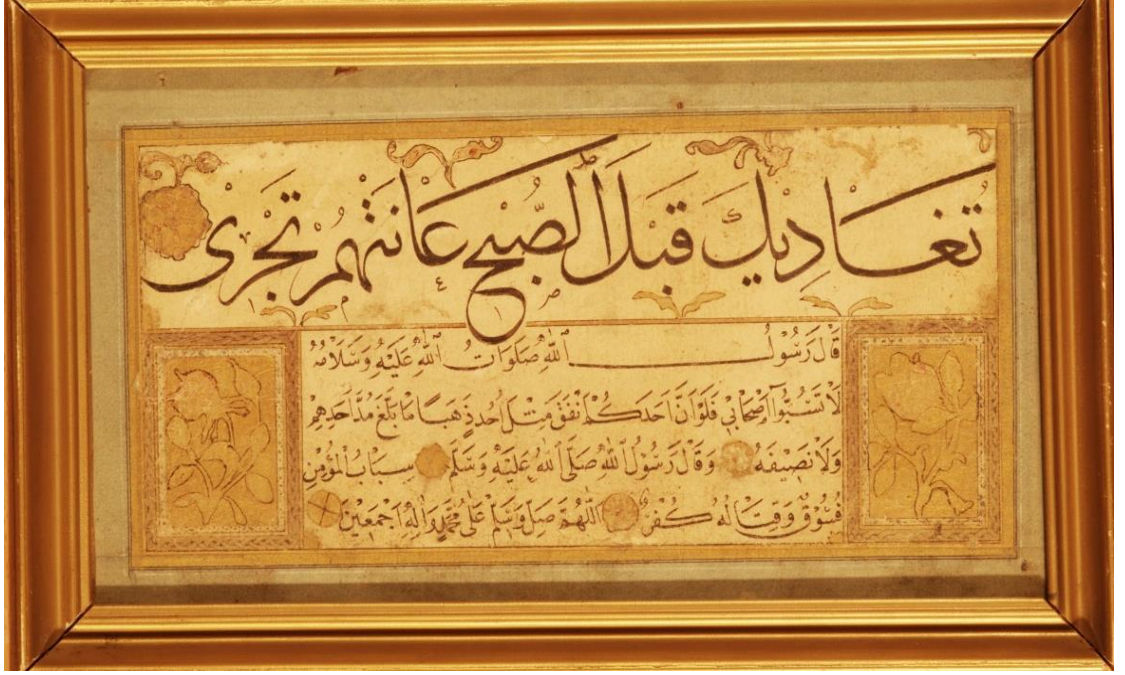 تُغَادِيكَ قَبْلَ الصُّبْحِ عَانَتُهُمْ تَجْرِى
قَالَ رَسُولُ اللهِ صَلَوَاتُ اللهِ عَلَيْهِ وَسَلَامُهُ
لَا تَسُبُّوا اَصْحَابِي فَلَوْ اَنَّ اَحَدَكُمْ اَنْفَقَ مِثْلَ اُحُدٍ ذَهَبًا مَا بَلَغَ مُدَّ اَحَدِهِمْ
وَلَا نَصِيفَهُ وَقَالَ رَسُولُ اللهِ صَلَّى اللهُ عَلَيْهِ وَسَلَّمَ سِبَابُ الْمُؤْمِنِ
فُسُوقٌ وَقِتَالُهُ كُفْرٌ اَللّٰهُمَّ صَلِّ وَسَلِّمْ عَلٰى مُحَمَّدٍ وَاٰلِهِ اَجْمَعِينَ